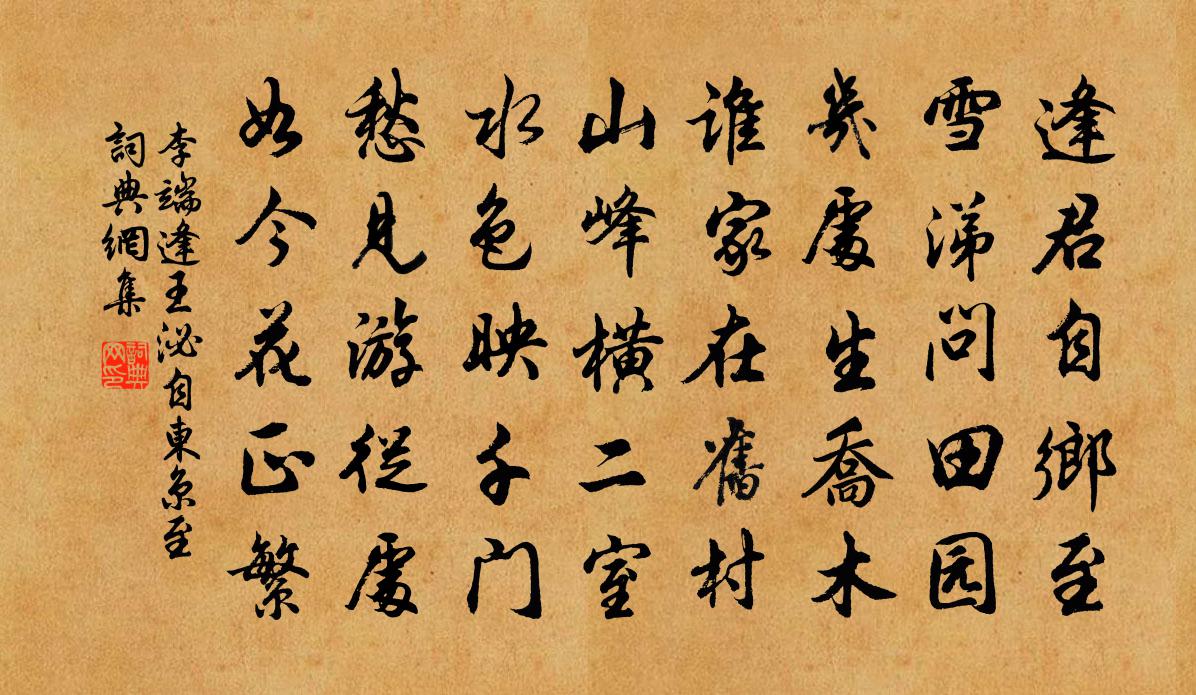 逢君自鄉至
雪涕問田园
幾處生喬木
誰家在舊村
山峰橫二室
水色映千门
愁見游從處
如今花正繁
李端逢王泌自東京至
詞典網集
詞典网印